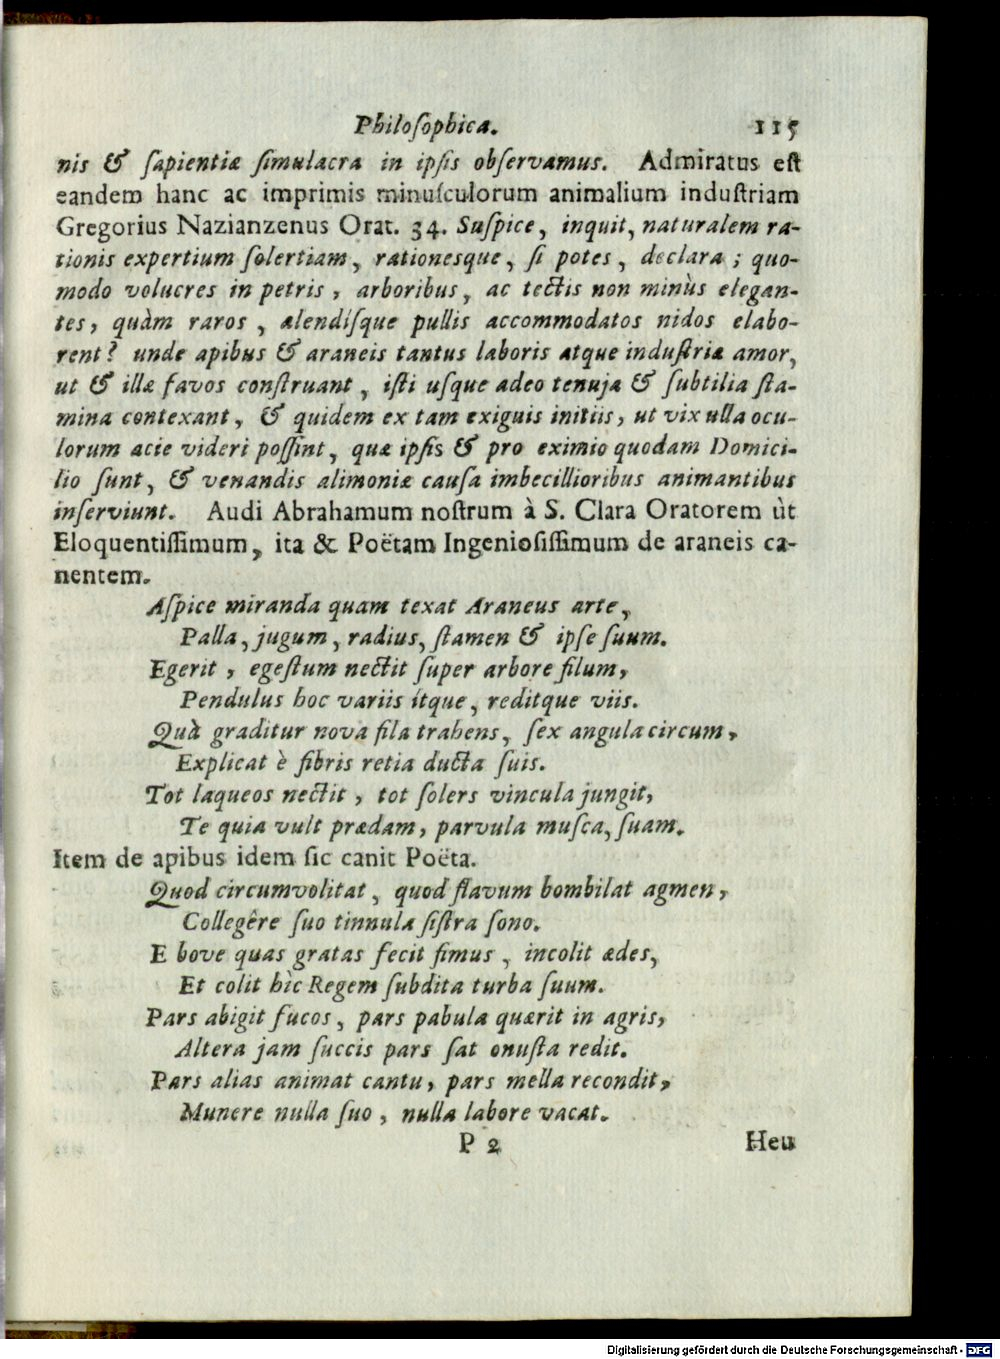 Philoſophica. 115
nis & ſapientiæ ſimulacra in ipſis obſervamus. Admiratus eſt
eandem hanc ac imprimis minuſculorum animalium induſtriam
Gregorius Nazianzenus Orat. 34. Suſpice, inquit, naturalem ra-
tionis expertium ſolertiam, rationesque, ſi potes, declara; quo-
modo volucres in petris, arboribus, ac tectis non minùs elegan-
tes, quàm raros, alendiſque pullis accommodatos nidos elabo-
rent? unde apibus & araneis tantus laboris atque induſtriæ amor,
ut & illæ favos conſtruant, iſti uſque adeo tenuja & ſubtilia ſta-
mina contexant, & quidem ex tam exiguis initiis, ut vix ulla ocu-
lorum acie videri poſſint, quæ ipſis & pro eximio quodam Domici-
lio ſunt, & venandis alimoniæ cauſa imbecillioribus animantibus
inſerviunt. Audi Abrahamum noſtrum à S. Clara Oratorem ùt
Eloquentiſſimum, ita & Poëtam Ingenioſiſſimum de araneis ca-
nentem.
Aſpice miranda quam texat Araneus arte,
Palla, jugum, radius, ſtamen & ipſe ſuum.
Egerit, egeſtum nectit ſuper arbore filum,
Pendulus hoc variis ítque, reditque viis.
Quà graditur nova fila trahens, ſex angula circum,
Explicat è fibris retia ducta ſuis.
Tot laqueos nectit, tot ſolers vincula jungit,
Te quia vult prædam, parvula muſca, ſuam.
Item de apibus idem ſic canit Poëta.
Quod circumvolitat, quod flavum bombilat agmen,
Collegêre ſuo tinnula ſiſtra ſono.
E bove quas gratas fecit fimus, incolit ædes,
Et colit hìc Regem ſubdita turba ſuum.
Pars abigit fucos, pars pabula quærit in agris,
Altera jam ſuccis pars ſat onuſta redit.
Pars alias animat cantu, pars mella recondit,
Munere nulla ſuo, nulla labore vacat.
P 2 Heu
Digitalisierung gefördert durch die Deutsche Forschungsgemeinschaft - DFG